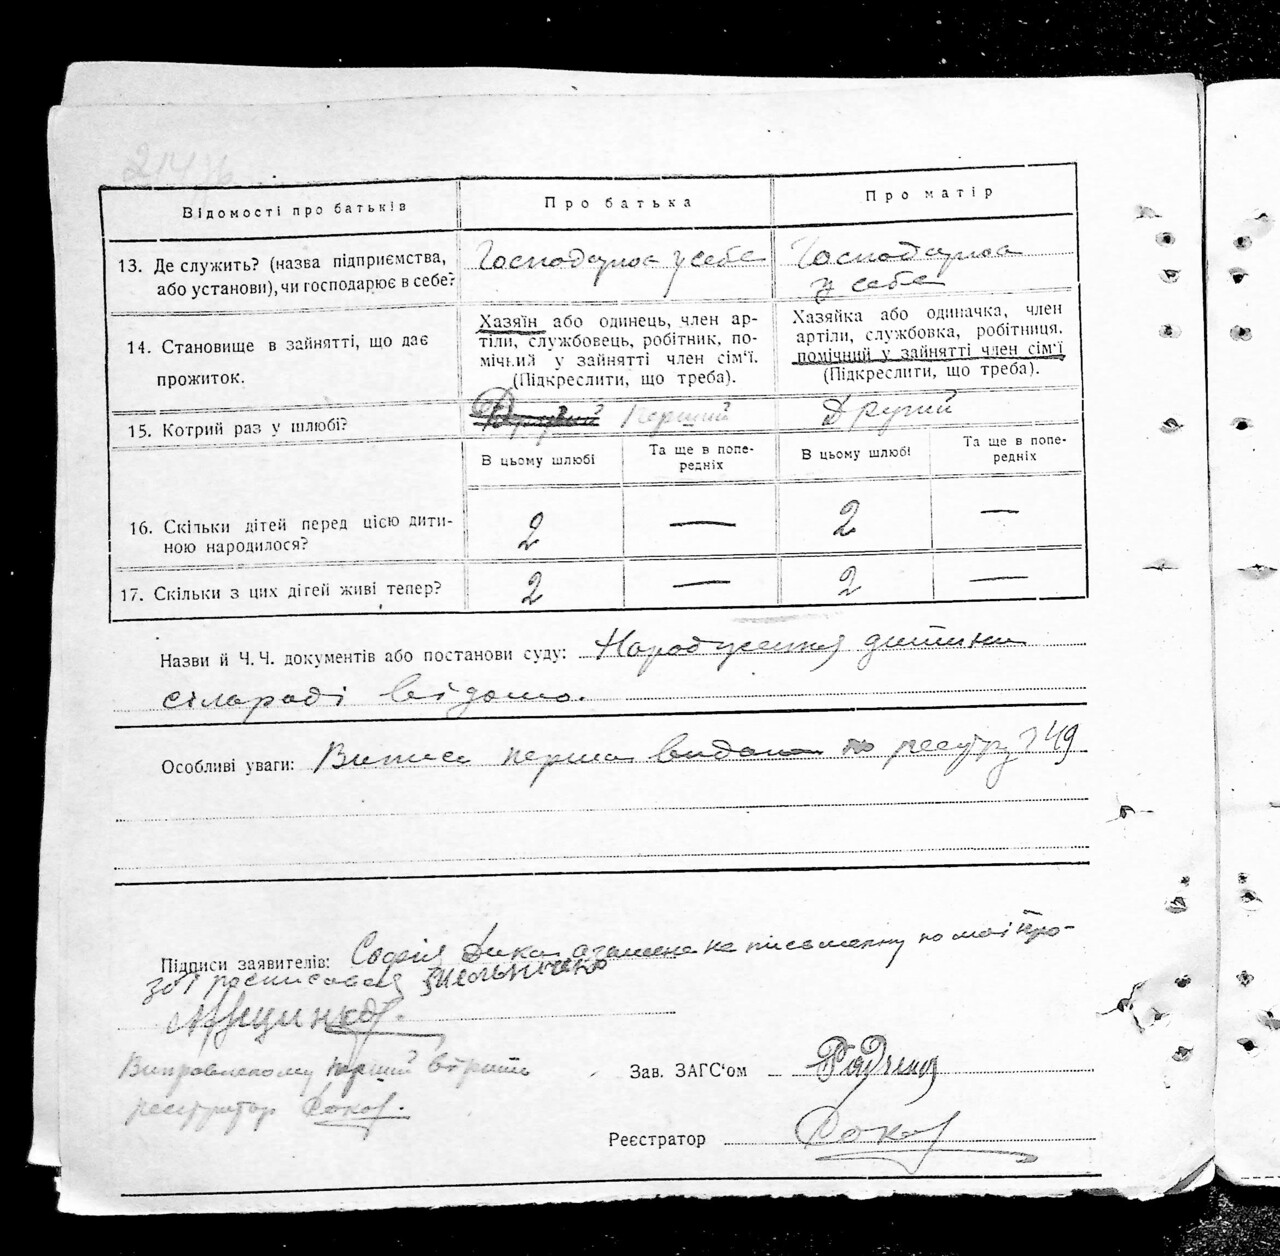 214
Відомості про батьків
Про батька
Про матір
13. Де служить? (назва підприємства, або установи), чи господарює в себе?
Господарює у себе
Господарює
у себе
14. Становище в зайнятті, що дає
прожиток.
Хазяїн або одинець, член ар-
тіли, службовець, робітник, по-
мічний у зайнятті член сім'ї.
(Підкреслити, що треба).
Хазяйка або одиначка, член
артіли, службовка, робітниця,
помічний у зайнятті член сім'ї
(Підкреслити, що треба).
15. Котрий раз у шлюбі?
Другий Перший
Другий
В цьому шлюбі
Та ще в попе-
редніх
В цьому шлюбі
Та ще в попе-
редніх
16. Скільки дітей перед цією дити-
ною народилося?
2 — 2 —
17. Скільки з цих дітей живі тепер?
2 — 2 —
Назви й Ч.Ч. документів або постанови суду: Народження дитини
сілєраді відомо.
Особливі уваги: Випись перша видана по реєстру 249
Підписи заявителів: Софія Дика а за нене на письменну по моїй про-
зві росписався
перший
реєстратор
Зав. ЗАГС'ом
Реєстратор